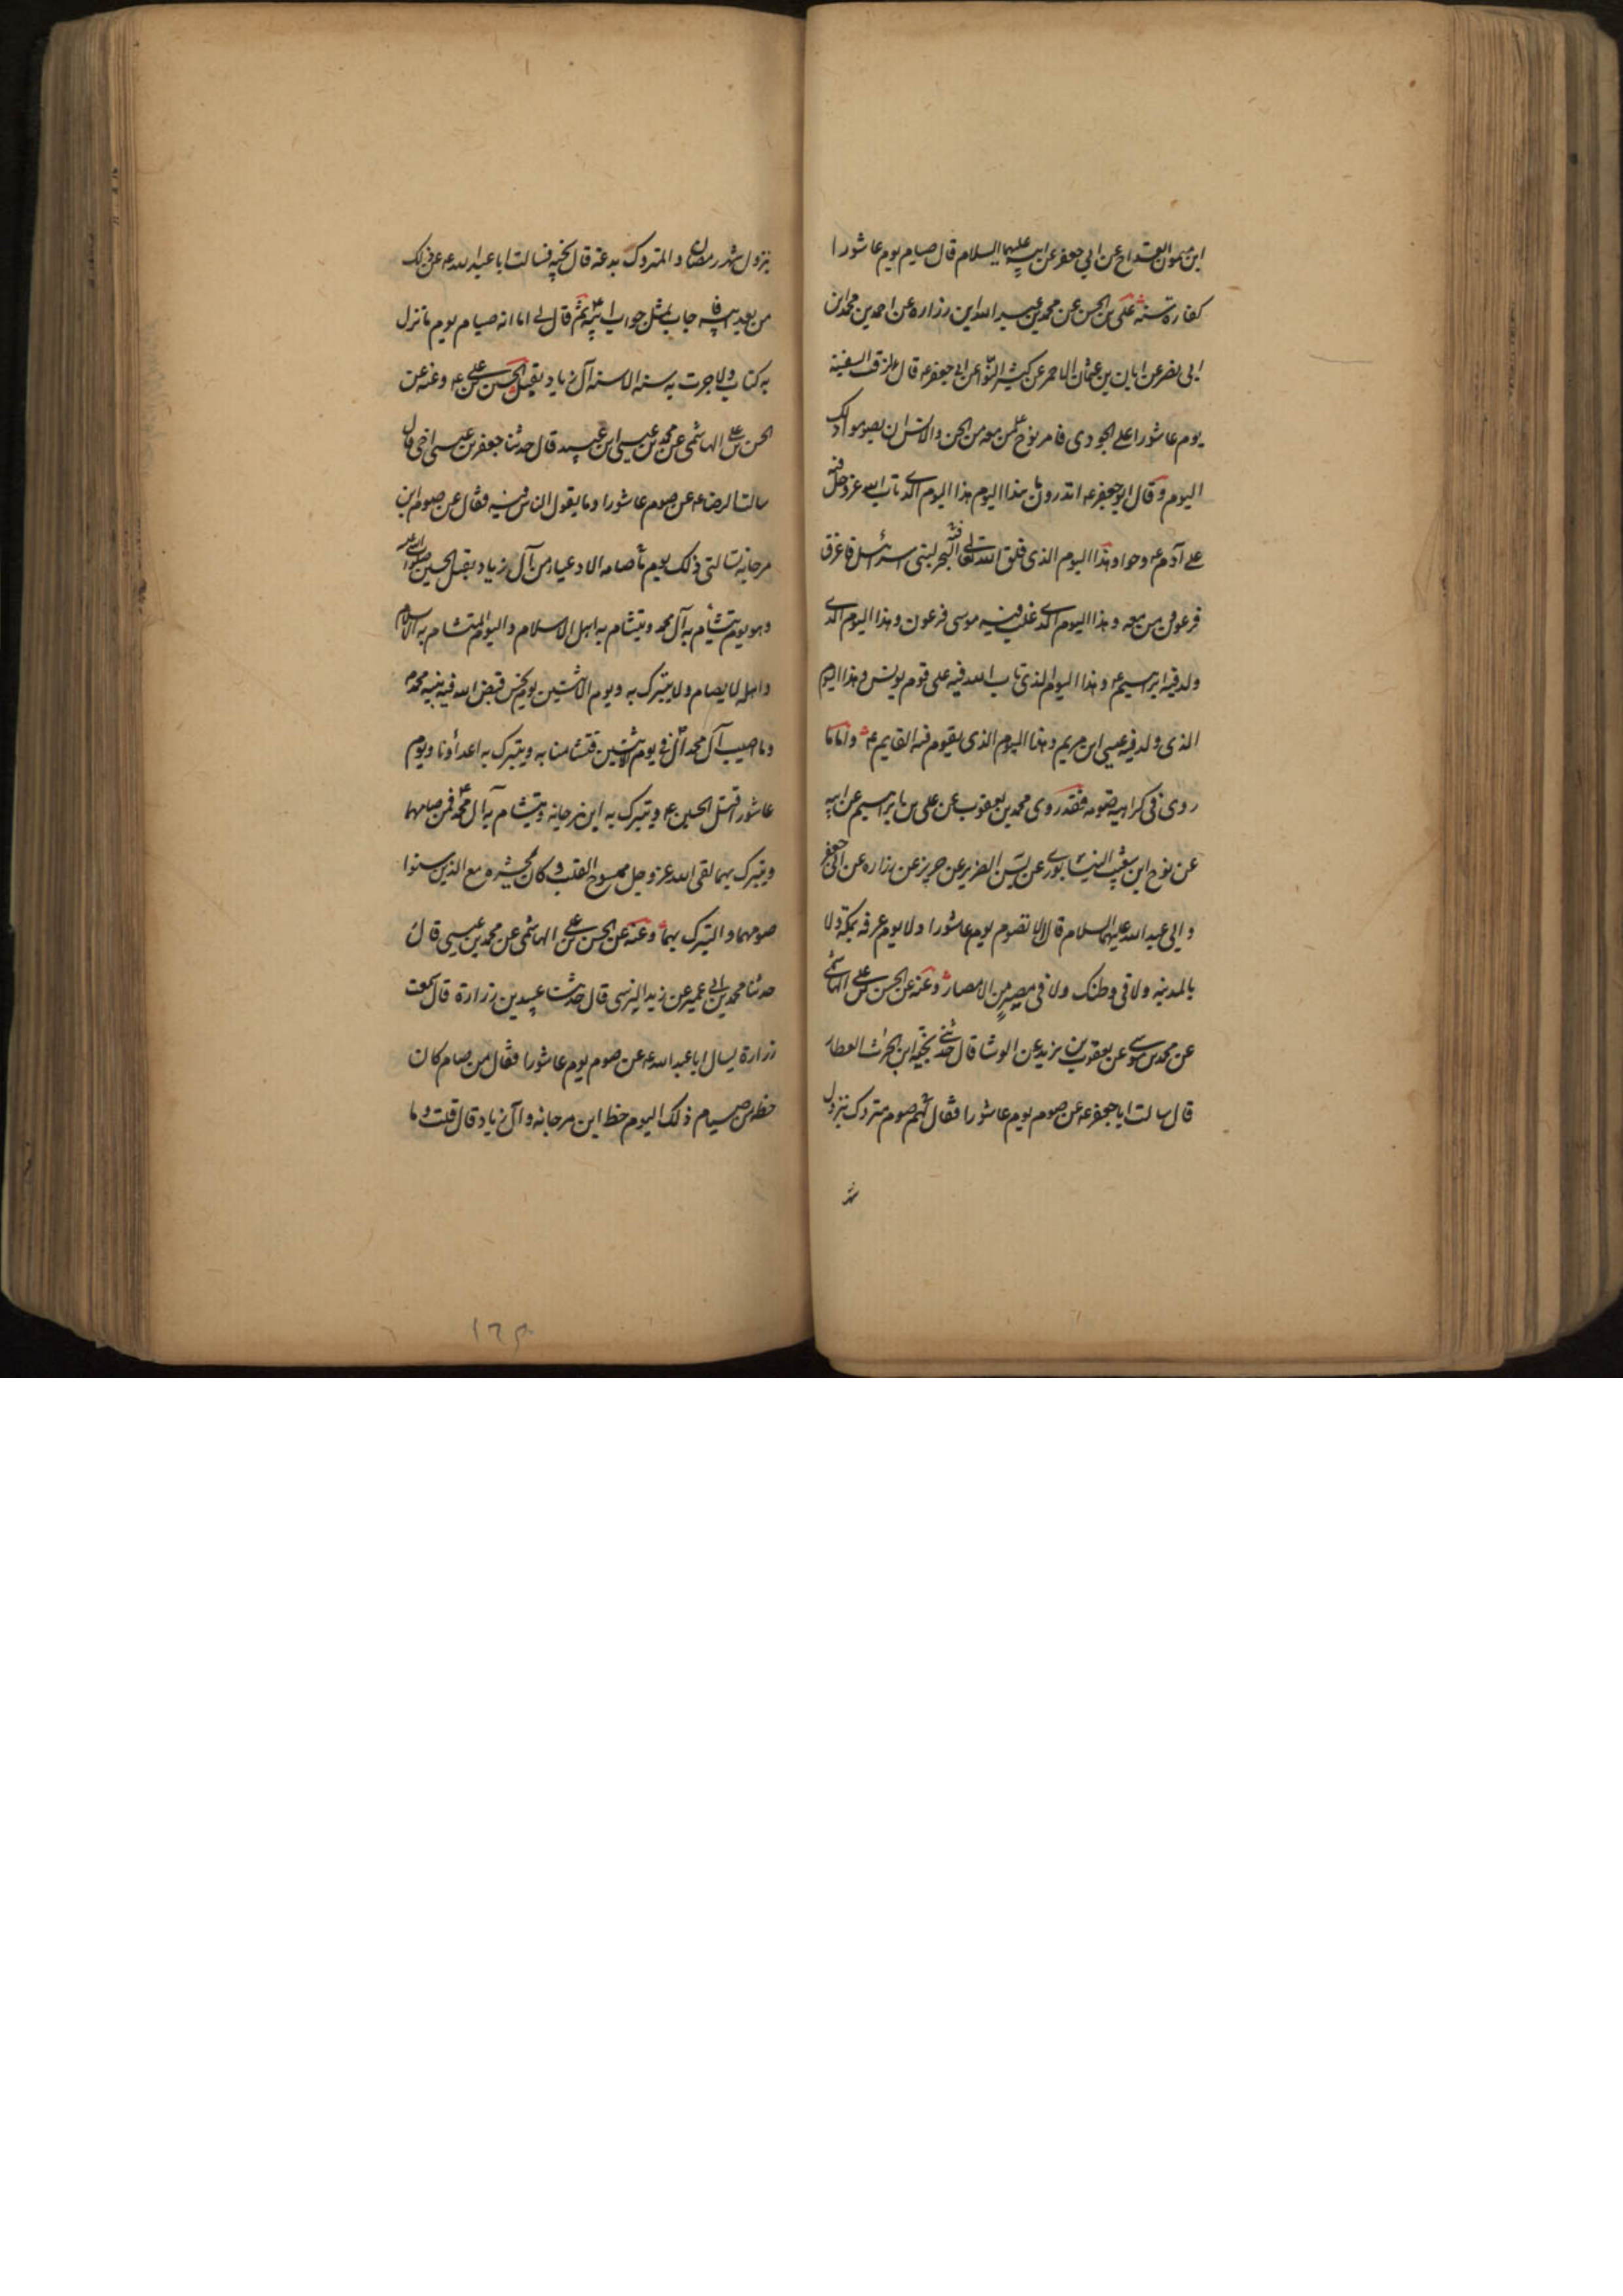 ابن ميمون القداح عن ابي جعفر عن ابيه عليهما السلام قال صيام يوم عاشورا
كفارة سنة علي بن الحسن عن محمد بن عبيد الله ابن زراره عن احمد بن محمد ابن
ابى نصر عن ابان بن عثمان الاحمر عن كثير النوا عن ابى جعفر ع قال لزقت السفينة
يوم عاشورا على الجودى فامر نوح ع من معه من الجن والانس ان يصوموا ذلك
اليوم و قال ابو جعفر ع اتدرون ما هذا اليوم هذا اليوم الذى تاب الله عز وجل فيه
على آدم ع و حوا و هذا اليوم الذى فلق الله تعالى فيه البحر لبنى اسرائيل فاغرق
فرعون و من معه و هذا اليوم الذى غلب فيه موسى فرعون و هذا اليوم الذى
ولد فيه ابرهيم ع و هذا اليوم الذى تاب الله فيه على قوم يونس و هذا اليوم
الذى ولد فيه عيسى ابن مريم و هذا اليوم الذى يقوم فيه القايم ع و اما ما
روى فى كراهية صومه فقد روى محمد بن يعقوب عن على بن ابراهيم عن ابيه
عن نوح ابن شعيب النيسابورى عن يس الضرير عن حريز عن زراره عن ابى جعفر
و ابي عبد الله عليهما السلام قال لا تصوم يوم عاشورا و لا يوم عرفه بمكة و لا
بالمدينه و لا فى وطنك و لا فى مصر من الامصار و عنه عن الحسن بن على الهاشمى
عن محمد بن موسى عن يعقوب بن يزيد عن الوشا قال حدثنى نجيه ابن الحرث العطار
قال سالت ابا جعفر ع عن صوم يوم عاشورا فقال صوم متروك بنزول
شهر
بنزول شهر رمضان و المتروك بدعة قال نجيه فسالت ابا عبد الله ع عن ذلك
من بعد ابيه فاجاب بمثل جواب ابيه ثم قال لى اما انه صيام يوم ما نزل
به كتاب و لا جرت به سنه الا سنه آل زياد بقتل الحسين بن على ع و عنه عن
الحسن بن على الهاشمى عن محمد بن عيسى ابن عبيد قال حدثنا جعفر بن عيسى اخى قال
سالت الرضا ع عن صوم عاشورا و ما يقول الناس فيه فقال عن صوم ابن
مرجانه تسالنى ذلك يوم ما صامه الا الادعياء من آل زياد بقتل الحسين صلوات الله عليه
و هو يوم يتشأم به آل محمد و يتشام به اهل الاسلام و اليوم المتشام به الاسلام
و اهله لا يصام و لا يتبرك به و يوم الاثنين يوم نحس قبض الله فيه نبيه محمد ص
و ما اصيب آل محمد الا فى يوم الاثنين فتشامنا به و يتبرك به اعداؤنا و يوم
عاشورا قتل الحسين ع و يتبرك به ابن مرجانه و يتشام به آل محمد فمن صامهما
و يتبرك بهما لقى الله عز و جل ممسوخ القلب و كان محشره مع الذين سنوا
صومهما و التبرك بهما و عنه عن الحسن بن على الهاشمى عن محمد بن عيسى قال
حدثنا محمد بن ابى عمير عن زيد النرسى قال حدثنا عبيد بن زرارة قال سمعت
زرارة يسال ابا عبد الله ع عن صوم يوم عاشورا فقال من صام كان
حظه من صيام ذلك اليوم حظ ابن مرجانه و آل زياد قال قلت و ما